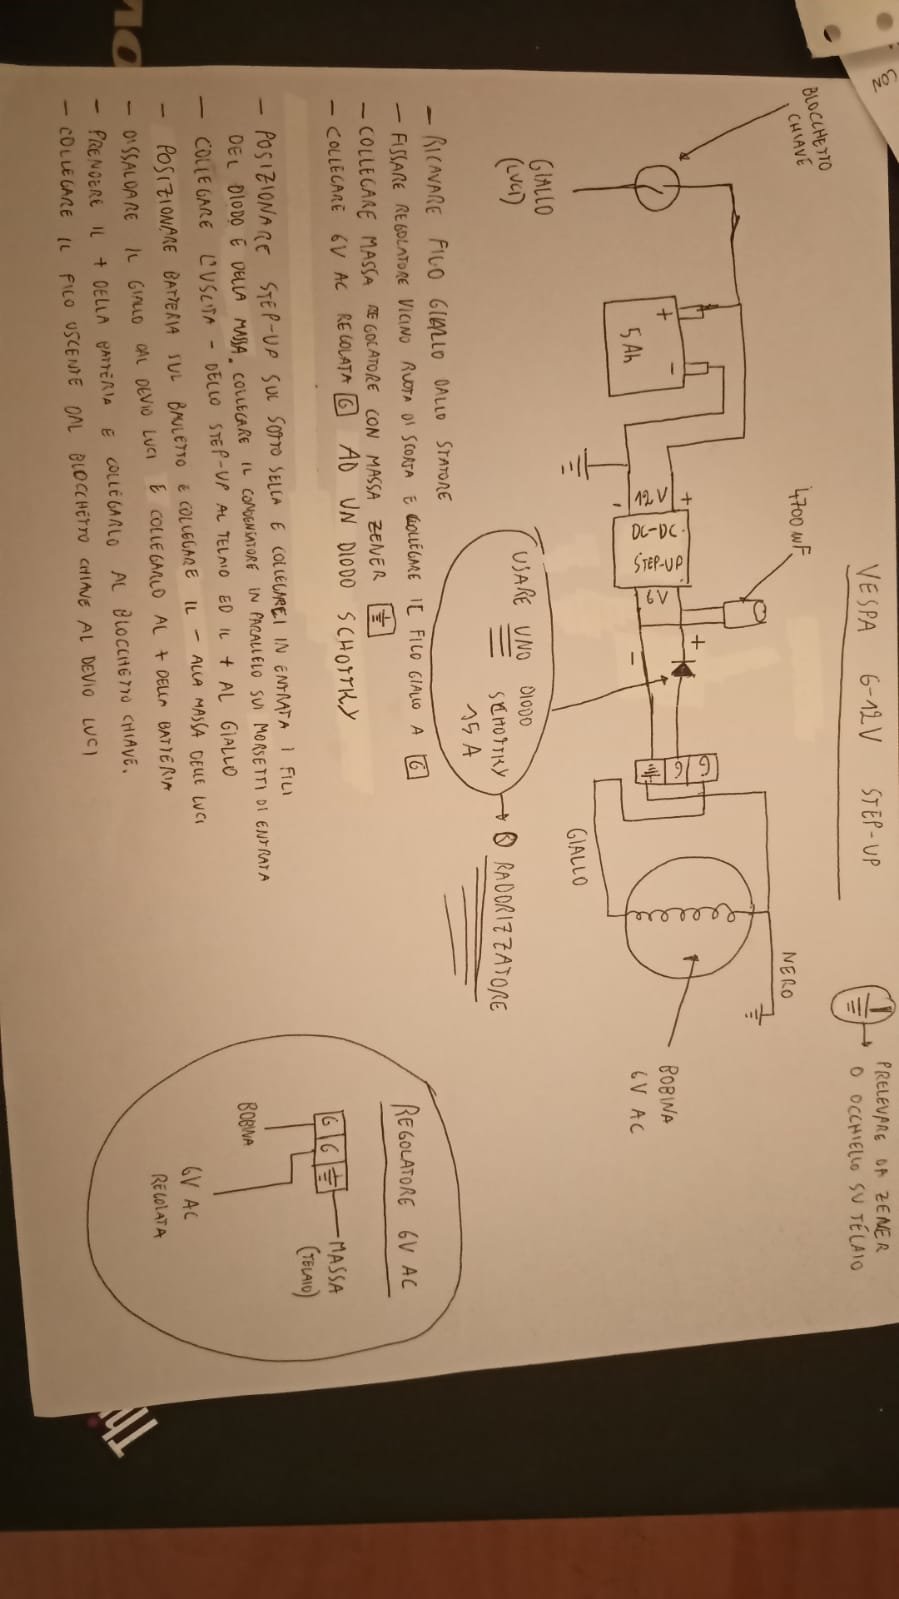 VESPA 6-12V STEP-UP
PRELEVARE DA ZENER
O OCCHIELLO SU TELAIO
BLOCCHETTO
CHIAVE
GIALLO
(LUCI)
+ -
5 Ah
+
12V
-
DC-DC
STEP-UP
6V
4700 uF
+
-
G G
GIALLO
NERO
BOBINA
6V AC
USARE UNO DIODO
SCHOTTKY
15A
RADDRIZZATORE
- RICAVARE FILO GIALLO DALLO STATORE
- FISSARE REGOLATORE VICINO RUOTA DI SCORTA E COLLEGARE IL FILO GIALLO A G
- COLLEGARE MASSA REGOLATORE CON MASSA ZENER
- COLLEGARE 6V AC REGOLATA G AD UN DIODO SCHOTTKY
- POSIZIONARE STEP-UP SUL SOTTO SELLA E COLLEGARCI IN ENTRATA I FILI
DEL DIODO E DELLA MASSA. COLLEGARE IL CONDENSATORE IN PARALLELO SUI MORSETTI DI ENTRATA
- COLLEGARE L'USCITA - DELLO STEP-UP AL TELAIO ED IL + AL GIALLO
- POSIZIONARE BATTERIA SUL BAULETTO E COLLEGARE IL - ALLA MASSA DELLE LUCI
- DISSALDARE IL GIALLO DAL DEVIO LUCI E COLLEGARLO AL + DELLA BATTERIA
- PRENDERE IL + DELLA BATTERIA E COLLEGARLO AL BLOCCHETTO CHIAVE.
- COLLEGARE IL FILO USCENTE DAL BLOCCHETTO CHIAVE AL DEVIO LUCI
REGOLATORE 6V AC
G G
MASSA
(TELAIO)
BOBINA
6V AC
REGOLATA